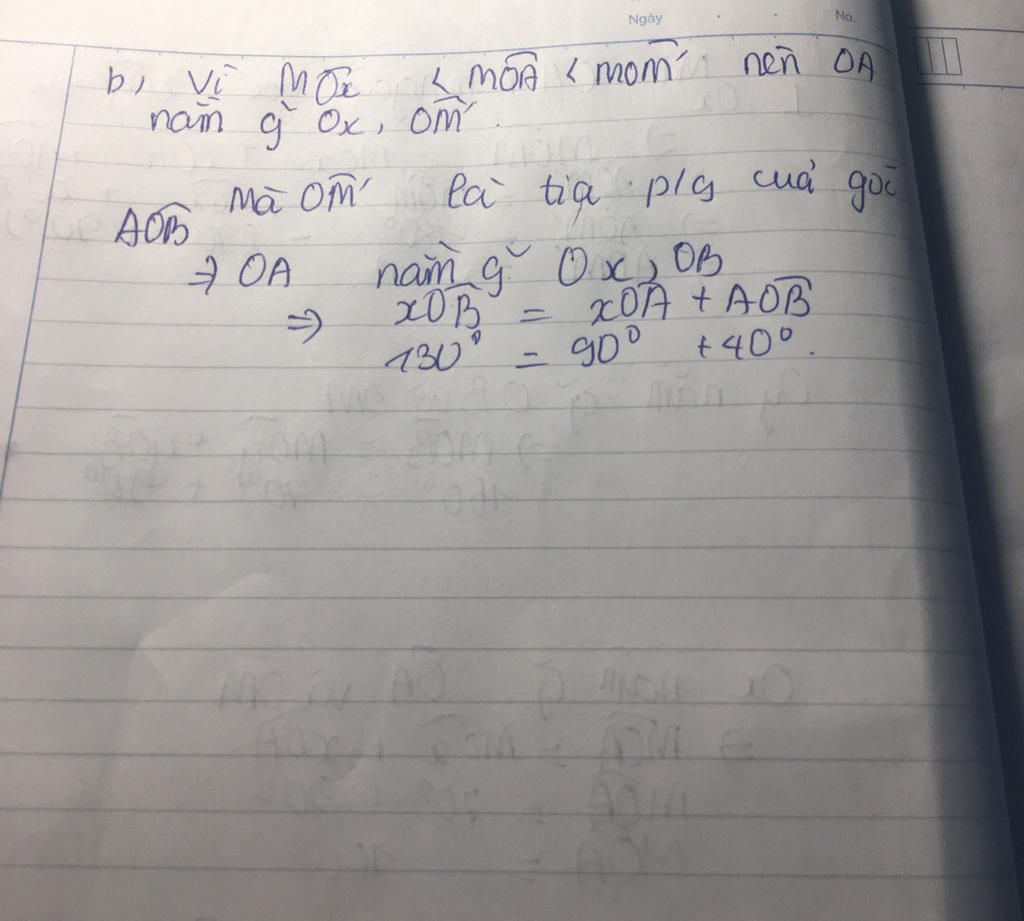 Ngày No.
b, Vì MOx < MOA < mOm' nên OA
nằm g˘ Ox, Om'.
Mà Om' là tia p/g của góc
AOB
⇒ OA nằm g˘ Ox, OB
⇒ xOB = xOA + AOB
130° = 90° + 40°.